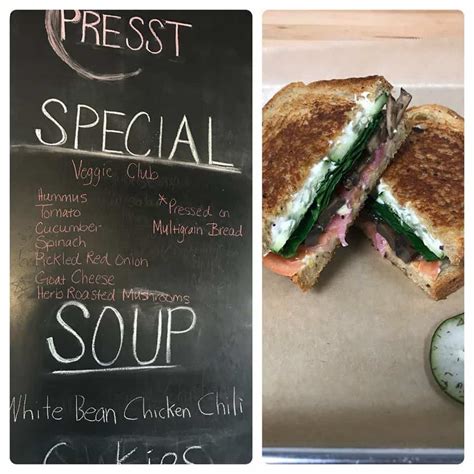 PRESST
SPECIAL
Veggie Club
Hummus
Tomato
Cucumber
Spinach
Pickled Red Onion
Goat Cheese
Herb Roasted Mushrooms
*Pressed on
Multigrain Bread
SOUP
White Bean Chicken Chili